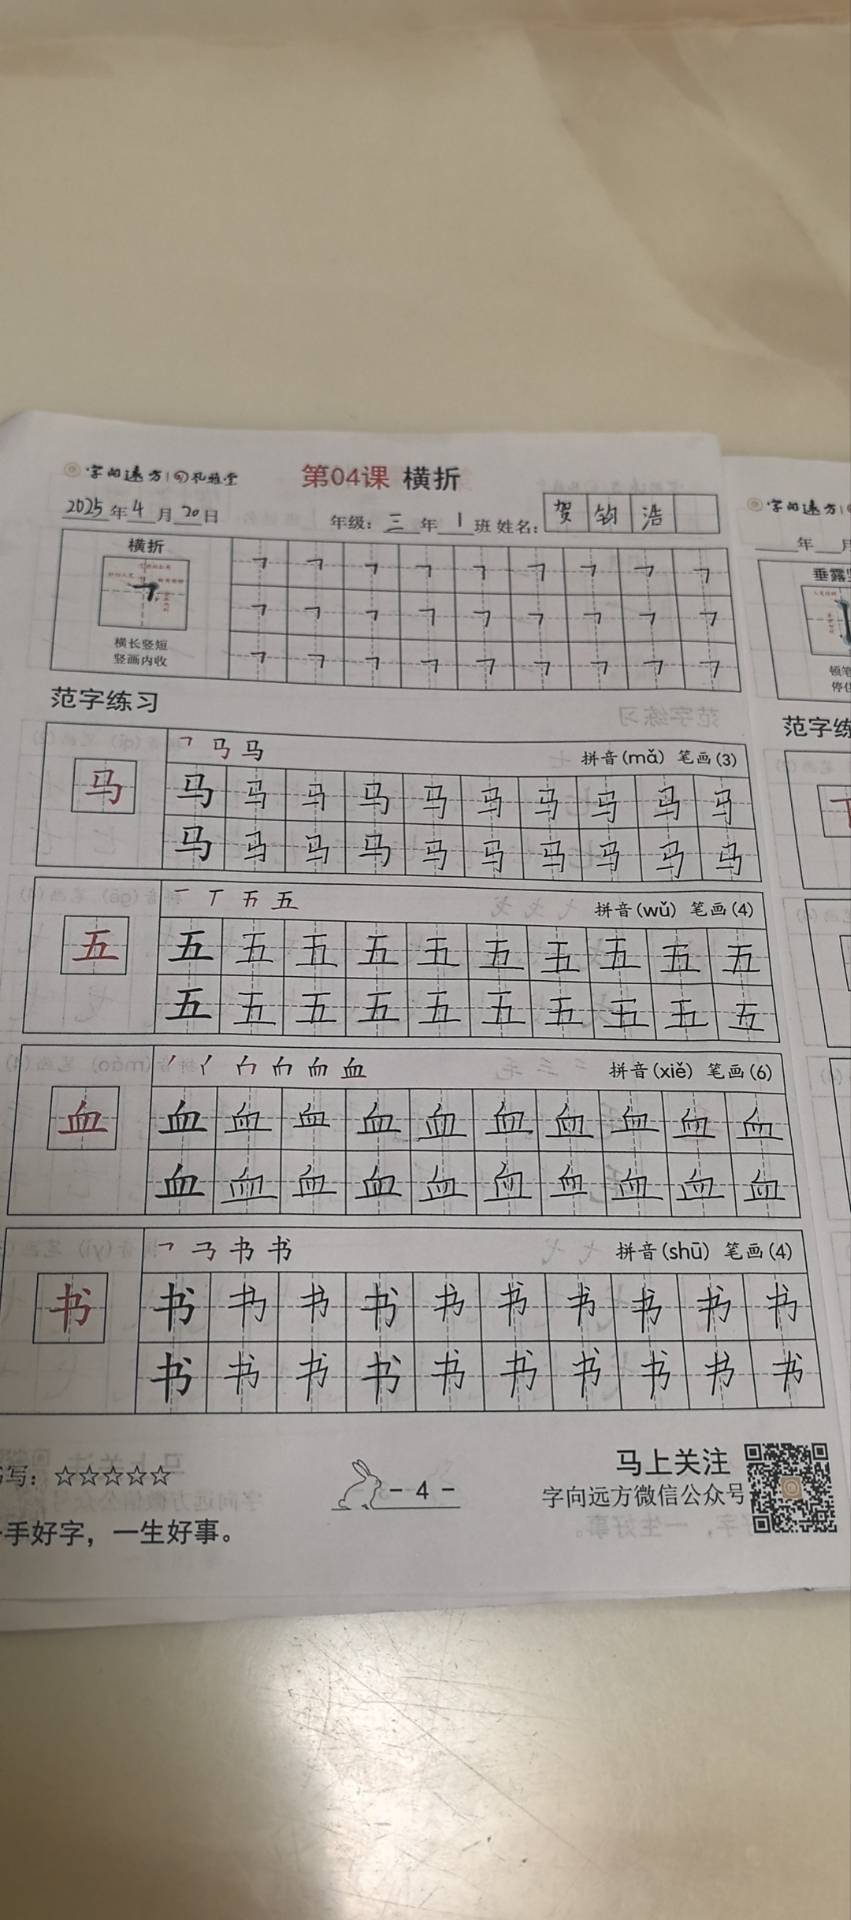 字向远方
第04课 横折
2025年4月20日
年级：三年1班 姓名：贺钧浩
横折
横长竖短
竖画内收
范字练习
马
马 拼音(mǎ) 笔画(3)
马 马 马 马 马 马 马 马 马 马
马 马 马 马 马 马 马 马 马 马
五
五 拼音(wǔ) 笔画(4)
五 五 五 五 五 五 五 五 五 五
五 五 五 五 五 五 五 五 五 五
血
血 拼音(xiě) 笔画(6)
血 血 血 血 血 血 血 血 血 血
血 血 血 血 血 血 血 血 血 血
书
书 拼音(shū) 笔画(4)
书 书 书 书 书 书 书 书 书 书
书 书 书 书 书 书 书 书 书 书
写：☆☆☆☆☆
手好字，一生好事。
- 4 -
马上关注
字向远方微信公众号
字向远方
年 月
垂露
顿笔
范字练